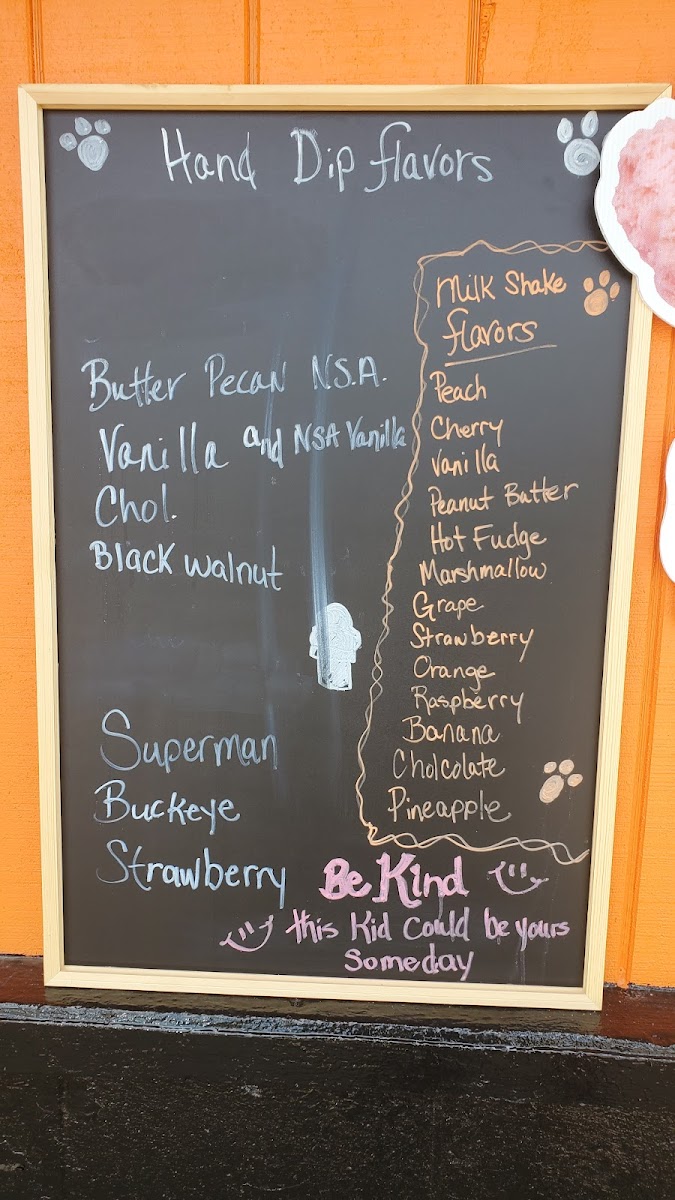 Hand Dip flavors
Butter Pecan N.S.A.
Vanilla and NSA Vanilla
Chol.
Black walnut
Superman
Buckeye
Strawberry
Milk Shake
flavors
Peach
Cherry
Vanilla
Peanut Butter
Hot Fudge
Marshmallow
Grape
Strawberry
Orange
Raspberry
Banana
Cholcolate
Pineapple
Be Kind
this Kid Could be yours
Someday